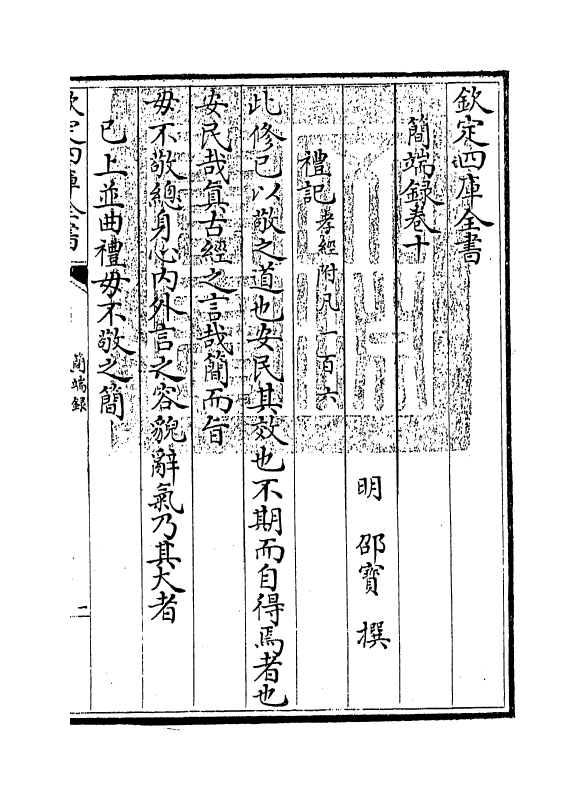 欽定四庫全書
簡端錄卷十
明 邵寶 撰
禮記孝經附凡一百六
此修己以敬之道也安民其效也不期而自得焉者也
安民哉真古經之言哉簡而旨
毋不敬總身心內外言之容貌辭氣乃其大者
已上並曲禮毋不敬之簡
欽定四庫全書
簡端錄